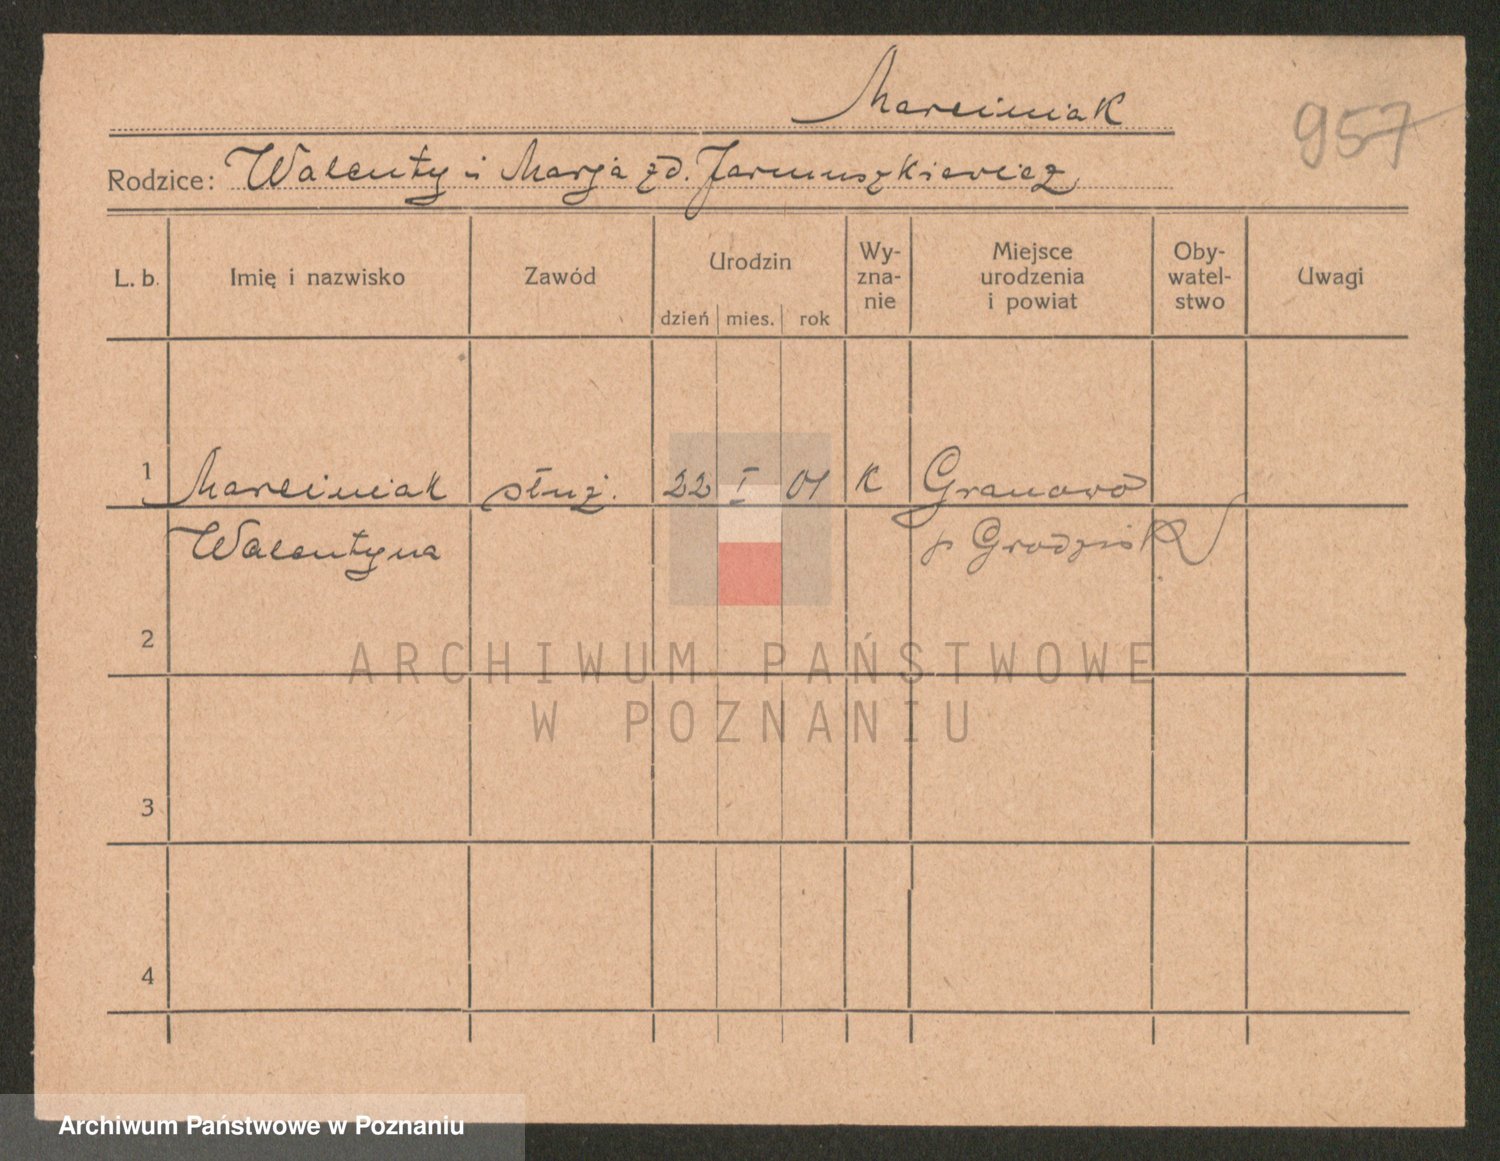 Marciniak
957
Rodzice: Walenty i Marja zd. Jarmuszkiewicz
L. b. Imię i nazwisko Zawód Urodzin dzień mies. rok Wy-zna-nie Miejsce urodzenia i powiat Oby-watel-stwo Uwagi
1 Marciniak służ. 22 I 01 K Granowo
Walentyna p Grodzisk
2
ARCHIWUM PAŃSTWOWE
W POZNANIU
3
4
Archiwum Państwowe w Poznaniu